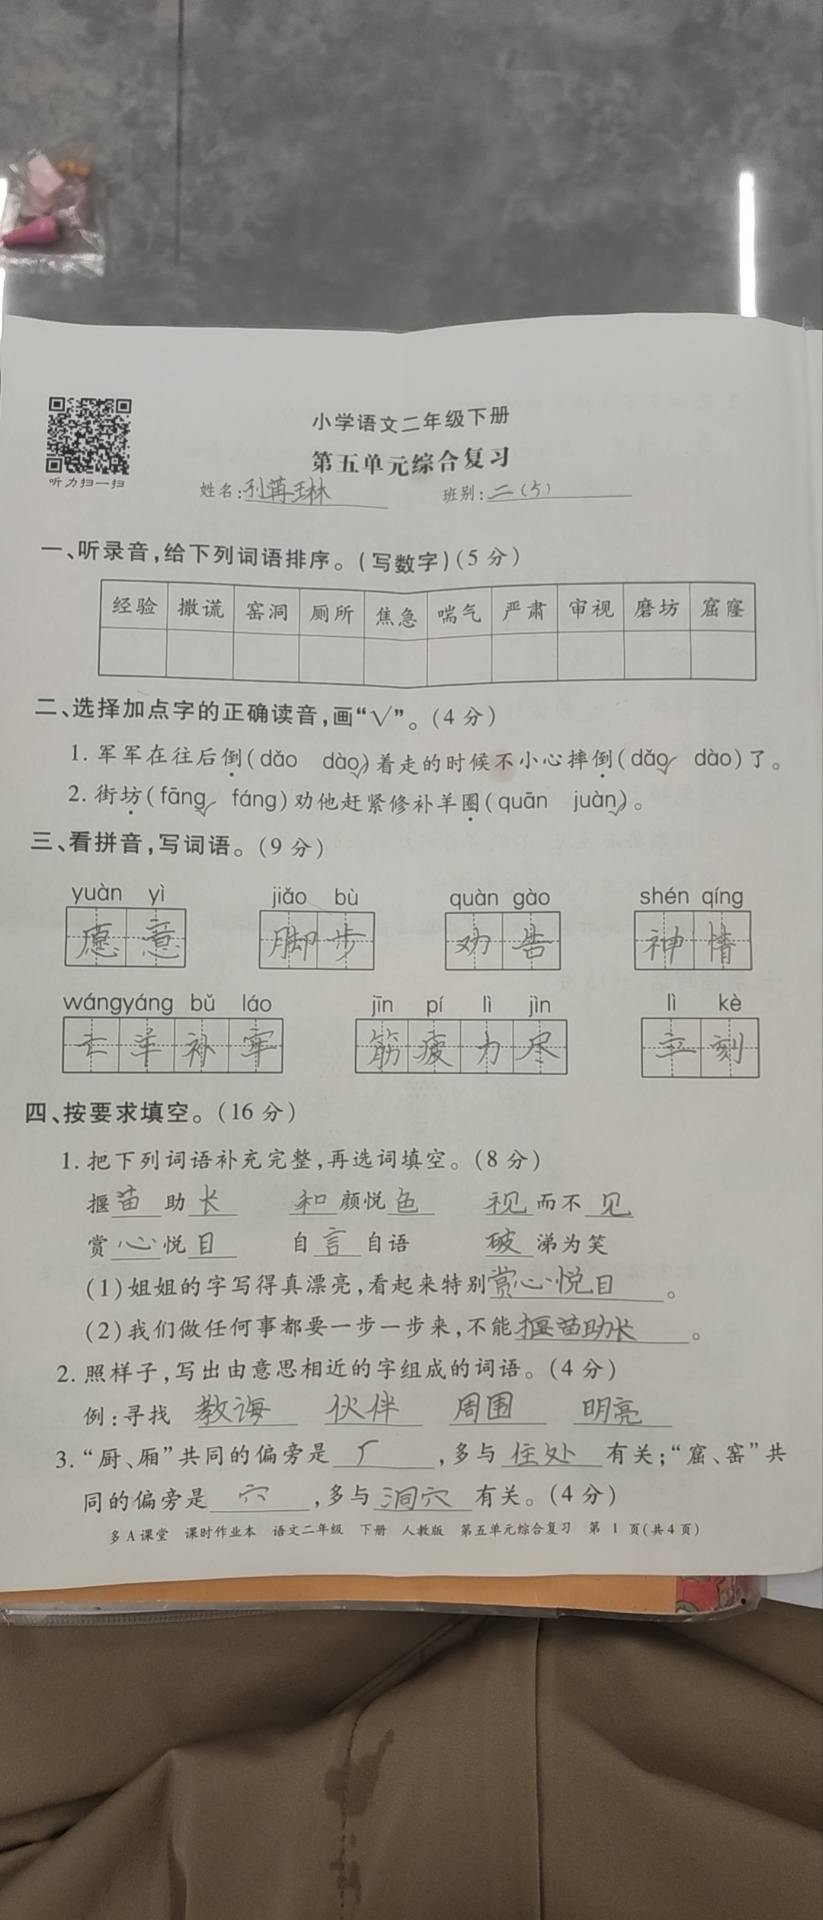 小学语文二年级下册
第五单元综合复习
听力扫一扫
姓名:孙苒琳 班别:二(5)
一、听录音,给下列词语排序。(写数字)(5分)
经验 撒谎 窑洞 厕所 焦急 喘气 严肃 审视 磨坊 窟窿
二、选择加点字的正确读音,画“√”。(4分)
1. 军军在往后倒(dǎo dào√)着走的时候不小心摔倒(dǎo√ dào)了。
2. 街坊(fāng√ fáng)劝他赶紧修补羊圈(quān juàn√)。
三、看拼音,写词语。(9分)
yuàn yì jiǎo bù quàn gào shén qíng
愿意 脚步 劝告 神情
wángyáng bǔ láo jīn pí lì jìn lì kè
亡羊补牢 筋疲力尽 立刻
四、按要求填空。(16分)
1. 把下列词语补充完整,再选词填空。(8分)
揠苗助长 和颜悦色 视而不见
赏心悦目 自言自语 破涕为笑
(1)姐姐的字写得真漂亮,看起来特别赏心悦目。
(2)我们做任何事都要一步一步来,不能揠苗助长。
2. 照样子,写出由意思相近的字组成的词语。(4分)
例:寻找 教诲 伙伴 周围 明亮
3. “厨、厢”共同的偏旁是厂,多与住处有关;“窟、窑”共
同的偏旁是穴,多与洞穴有关。(4分)
多A课堂 课时作业本 语文二年级 下册 人教版 第五单元综合复习 第 1 页(共4页)